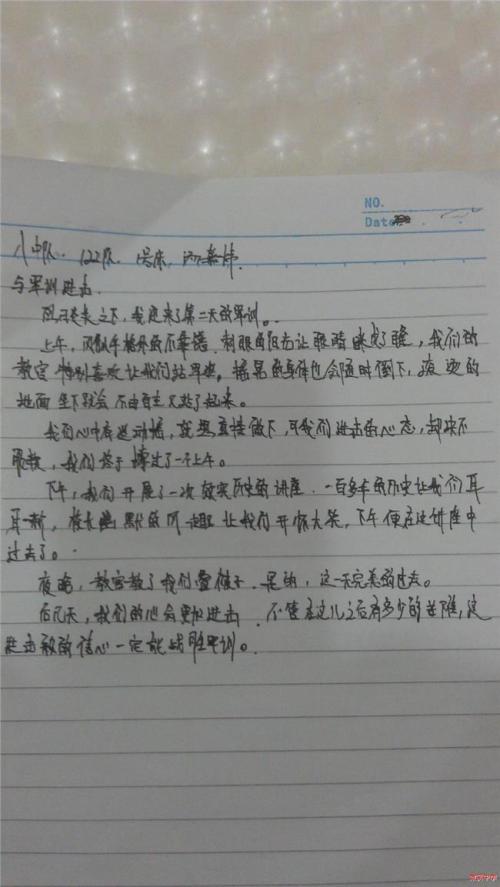 NO.
Date
八中队. 122队.
与军训进击.
之下,我迎来了第二天的军训。
上午,刺眼的阳光让眼睛,我们的
教官特别喜欢让我们站军姿,摇晃的身体也会随时倒下,滚烫的
地面坐下就会不由自主又站了起来。
我们心中有过动摇,就想直接倒下,可我们进击的心态,却决不
服教,我们终于撑过了一个上午。
下午,我们开展了一次校史历史的讲座.一百多年的历史让我们耳
目一新,校长幽默的风趣让我们开怀大笑,下午便在这讲座中
过去了。
夜晚,教官教了我们叠被子.是的,这一天完美的过去。
后几天,我们的心会更加进击.不管在这儿之后有多少的苦难,这
进击般的信心一定能战胜军训。